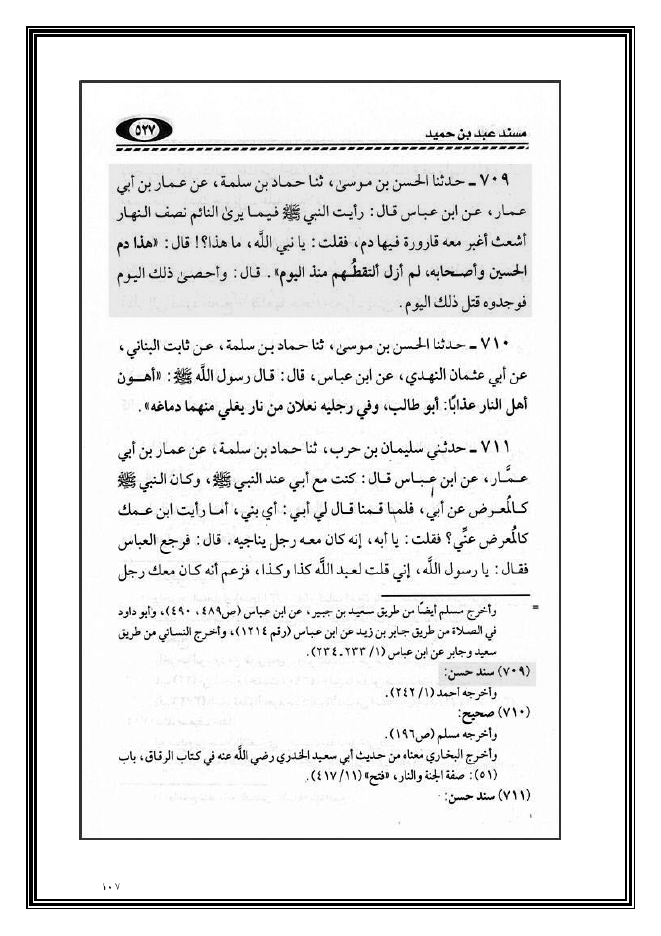 مسند عبد بن حميد
٥٢٧
٧٠٩ ـ حدثنا الحسن بن موسىٰ، ثنا حماد بن سلمة، عن عمار بن أبي
عمار، عن ابن عباس قال: رأيت النبي ﷺ فيما يرىٰ النائم نصف النهار
أشعث أغبر معه قارورة فيها دم، فقلت: يا نبي اللَّه، ما هذا؟! قال: «هذا دم
الحسين وأصحابه، لم أزل ألتقطُهم منذ اليوم». قال: وأحصىٰ ذلك اليوم
فوجدوه قتل ذلك اليوم.
٧١٠ ـ حدثنا الحسن بن موسىٰ، ثنا حماد بن سلمة، عن ثابت البناني،
عن أبي عثمان النهدي، عن ابن عباس، قال: قال رسول اللَّه ﷺ: «أهون
أهل النار عذابًا: أبو طالب، وفي رجليه نعلان من نار يغلي منهما دماغه».
٧١١ ـ حدثني سليمان بن حرب، ثنا حماد بن سلمة، عن عمار بن أبي
عمَّار، عن ابن عباس قال: كنت مع أبي عند النبي ﷺ، وكان النبي ﷺ
كالمُعرض عن أبي، فلما قمنا قال لي أبي: أي بني، أما رأيت ابن عمك
كالمُعرض عنِّي؟ فقلت: يا أبه، إنه كان معه رجل يناجيه. قال: فرجع العباس
فقال: يا رسول اللَّه، إني قلت لعبد اللَّه كذا وكذا، فزعم أنه كان معك رجل
= وأخرج مسلم أيضًا من طريق سعيد بن جبير، عن ابن عباس (ص٤٨٩، ٤٩٠)، وأبو داود
في الصلاة من طريق جابر بن زيد عن ابن عباس (رقم ١٢١٤)، وأخرج النسائي من طريق
سعيد وجابر عن ابن عباس (١/ ٢٣٣ـ ٢٣٤).
(٧٠٩) سند حسن:
وأخرجه أحمد (١/ ٢٤٢).
(٧١٠) صحيح:
وأخرجه مسلم (ص١٩٦).
وأخرج البخاري معناه من حديث أبي سعيد الخدري رضي اللَّه عنه في كتاب الرقاق، باب
(٥١): صفة الجنة والنار، «فتح» (١١/ ٤١٧).
(٧١١) سند حسن:
١٠٧